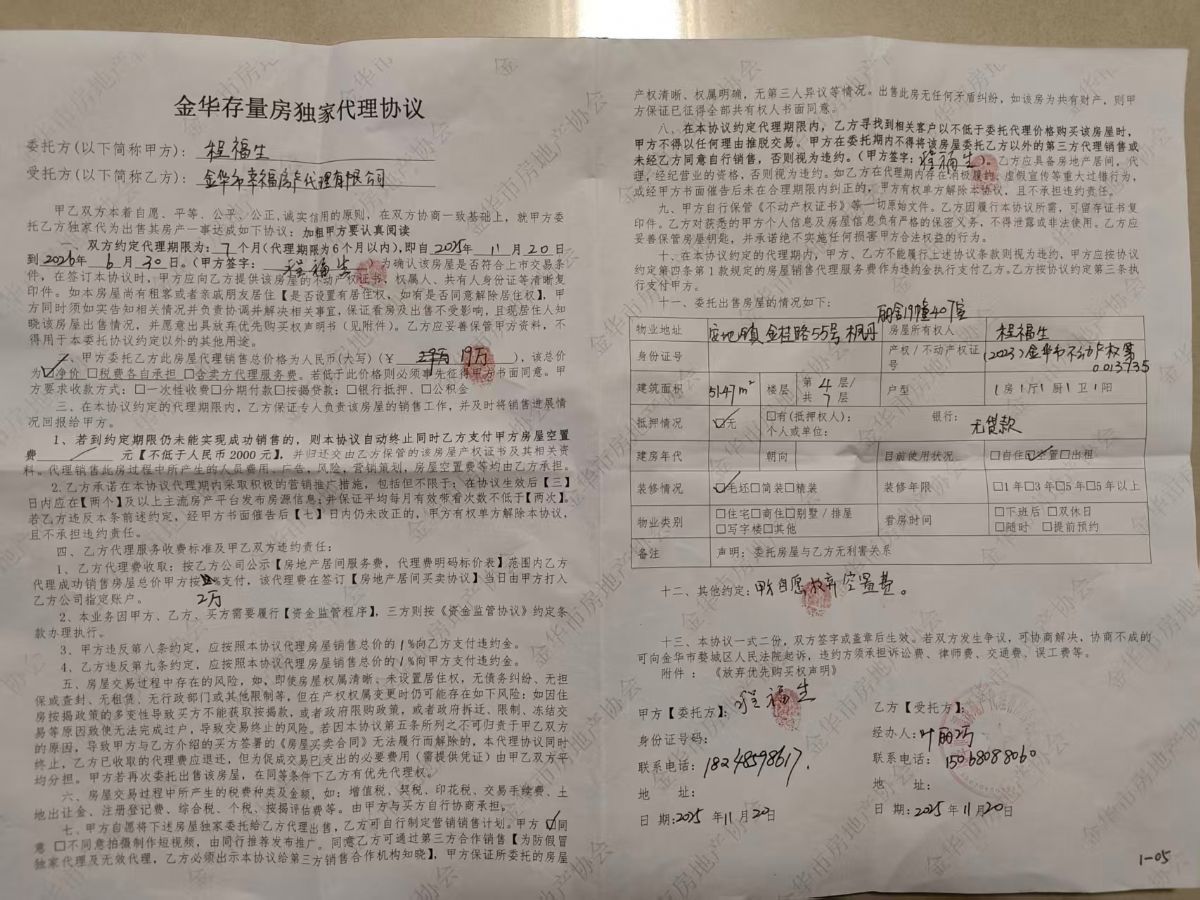 金华存量房独家代理协议
委托方(以下简称甲方): 程福生
受托方(以下简称乙方): 金华市幸福房产代理有限公司
甲乙双方本着自愿、平等、公平、公正,诚实信用的原则，在双方协商一致基础上，就甲方委
托乙方独家代为出售其房产一事达成如下协议：加粗甲方要认真阅读
一、双方约定代理期限为: 7 个月(代理期限为6个月以内),即自 2025年 11 月 20 日
到 2026年 6 月 30 日。(甲方签字: 程福生 )为确认该房屋是否符合上市交易条
件，在签订本协议时，甲方应向乙方提供该房屋的不动产权证书、权属人、共有人身份证等清晰复
印件。如本房屋尚有租客或者亲戚朋友居住【是否设置有居住权，如有是否同意解除居住权】，甲
方同时须如实告知相关情况并负责协调并解决相关事宜，保证看房及出售不受影响，且现居住人知
晓该房屋出售情况，并愿意出具放弃优先购买权声明书（见附件）。乙方应妥善保管甲方资料，不
得用于本委托协议约定以外的其他用途。
二、甲方委托乙方此房屋代理销售总价格为人民币(大写)(￥ 19万 ),该总价
为☑净价 □税费各自承担 □含卖方代理服务费。若低于此价格则必须事先征得甲方书面同意。甲
方要求收款方式：□一次性收费□分期付款□按揭贷款；□银行抵押、□公积金
三、在本协议约定的代理期限内，乙方保证专人负责该房屋的销售工作，并及时将销售进展情
况回报给甲方。
1、若到约定期限仍未能实现成功销售的，则本协议自动终止同时乙方支付甲方房屋空置
费 / 元【不低于人民币 2000 元】，并归还交由乙方保管的该房屋产权证书及其相关资
料。代理销售此房过程中所产生的人员费用、广告，风险，营销策划，房屋空置费等均由乙方承担。
2.乙方承诺在本协议代理期内采取积极的营销推广措施，包括但不限于；在协议生效后【三】
日内应在【两个】及以上主流房产平台发布房源信息;并保证平均每月有效带看次数不低于【两次】。
若乙方违反本条前述约定，经甲方书面催告后【七】日内仍未改正的，甲方有权单方解除本协议，
且不承担违约责任。
四、乙方代理服务收费标准及甲乙双方违约责任：
1、代理费收取：按乙方公司公示【房地产居间服务费，代理费明码标价表】范围内乙方
代理成功销售房屋总价甲方按 %支付，该代理费在签订【房地产居间买卖协议】当日由甲方打入
乙方公司指定账户。 2万
2、本业务因甲方、乙方、买方需要履行【资金监管程序】，三方则按《资金监管协议》约定条
款办理执行。
3、甲方违反第八条约定，应按照本协议代理房屋销售总价的 1%向乙方支付违约金。
4、乙方违反第九条约定，应按照本协议代理房屋销售总价的 1%向甲方支付违约金。
五、房屋交易过程中存在的风险，如、即使房屋权属清晰、未设置居住权，无债务纠纷、无担
保或查封、无租赁、无行政部门或其他限制等，但在产权权属变更时仍可能存在如下风险：如因住
房按揭政策的多变性导致买方不能获取按揭款，或者政府限购政策，或者政府拆迁、限制、冻结交
易等原因致使无法完成过户，导致交易终止的风险。若因本协议第五条所列之不可归责于甲乙双方
的原因，导致甲方与乙方介绍的买方签署的《房屋买卖合同》无法履行而解除的，本代理协议同时
终止，乙方已收取的代理费应退还，但为促成交易已支出的必要费用(需提供凭证)由甲乙双方平
均分担。甲方若再次委托出售该房屋，在同等条件下乙方有优先代理权。
六、房屋交易过程中所产生的税费种类及金额，如：增值税、契税、印花税、交易手续费、土
地出让金、注册登记费、综合税、个税、按揭评估费等。由甲方与买方自行协商承担。
七、甲方自愿将下述房屋独家委托给乙方代理出售，乙方可自行制定营销销售计划。甲方 ☑同
意 □不同意拍摄制作短视频，由同行推荐发布推广。同意乙方可通过第三方合作销售【为防假冒
独家代理及无效代理，乙方必须出示本协议给第三方销售合作机构知晓】，甲方保证所委托的房屋
产权清晰、权属明确，无第三人异议等情况。出售此房无任何矛盾纠纷，如该房为共有财产，则甲
方保证已征得全部共有权人书面同意。
八、在本协议约定代理期限内，乙方寻找到相关客户以不低于委托代理价格购买该房屋时，
甲方不得以任何理由推脱交易。甲方在委托期内不得将该房屋委托乙方以外的第三方代理销售或
未经乙方同意自行销售，否则视为违约。(甲方签字: 程福生 )。乙方应具备房地产居间、代
理，经纪营业的资格，否则视为违约。如乙方在代理期内存在消极履约、虚假宣传等重大过错行为，
或经甲方书面催告后未在合理期限内纠正的，甲方有权单方解除本协议，且不承担违约责任。
九、甲方自行保管《不动产权证书》等一切原始文件。乙方因履行本协议所需，可留存证书复
印件。乙方对获悉的甲方个人信息及房屋信息负有严格的保密义务，不得泄露或非法使用。乙方应
妥善保管房屋钥匙，并承诺绝不实施任何损害甲方合法权益的行为。
十、在本协议约定的代理期内，甲方、乙方不能履行上述协议条款则视为违约，甲方应按协议
约定第四条第 1 款规定的房屋销售代理服务费作为违约金执行支付乙方。乙方按协议约定第三条执
行支付甲方。
十一、委托出售房屋的情况如下：
丽舍19幢407室
物业地址 安地镇金桂路55号枫丹 房屋所有权人 程福生
身份证号 产权/不动产权证号 (2023)金华市不动产权第0013735
建筑面积 51.47m² 楼层 第 4 层/共 7 层 户型 房 厅 厨 卫 阳
抵押情况 ☑无 □有(抵押权人): 银行:
个人或单位: 无贷款
建房年代 朝向 目前使用状况 □自住☑空置□出租
装修情况 ☑毛坯□简装□精装 装修年限 □1年□3年□5年□5年以上
物业类别 □住宅□商住□别墅/排屋 □写字楼□其他 看房时间 □下班后 □双休日 □随时 □提前预约
备注 声明：委托房屋与乙方无利害关系
十二、其他约定: 甲方自愿放弃空置费。
十三、本协议一式二份，双方签字或盖章后生效。若双方发生争议，可协商解决，协商不成的
可向金华市婺城区人民法院起诉，违约方须承担诉讼费、律师费、交通费、误工费等。
附件：《放弃优先购买权声明》
甲方【委托方】: 程福生
身份证号码:
联系电话: 18248598617.
地 址:
日 期:2025 年 11月 20日
乙方【受托方】:
经办人: 叶丽巧
联系电话: 15068088060
地 址:
日 期: 2025 年 11月 20日
1-05